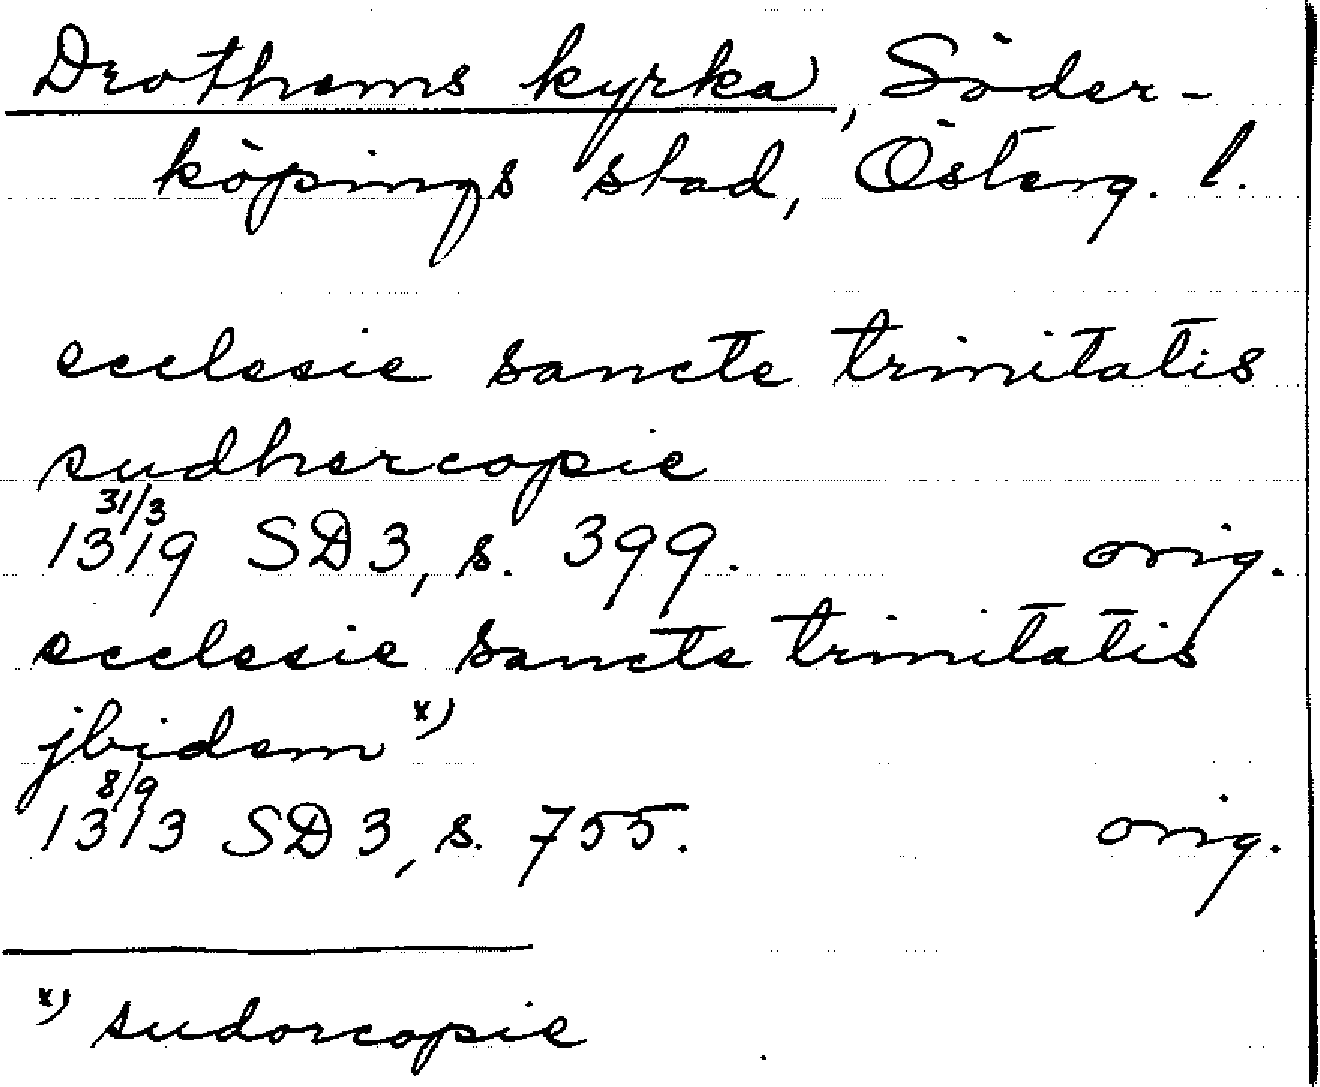 Drothems kyrka, Söder-
köpings stad, Österg. l.
ecclesie sancte trinitatis
sudhercopie
31/3
1319 SD 3, s. 399. orig.
ecclesie sancte trinitatis
jbidem x)
8/9
1313 SD 3, s. 755. orig.
x) sudorcopie